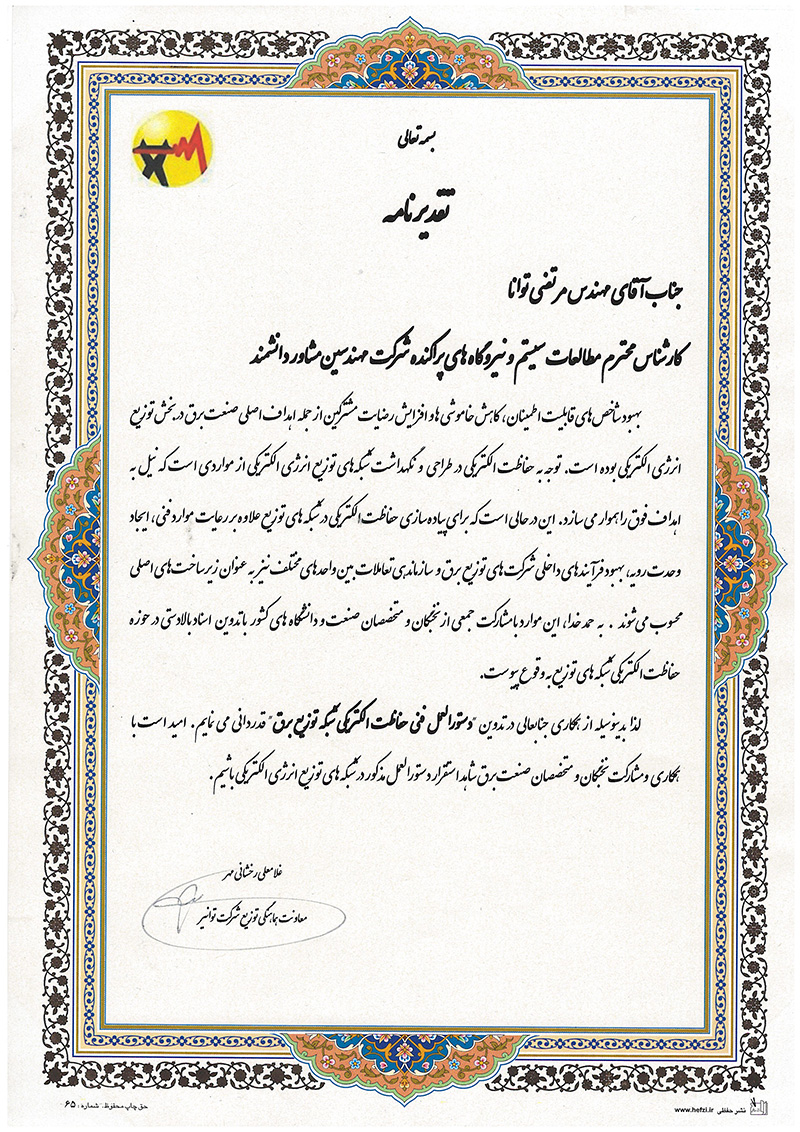 بسمه تعالی
تقدیرنامه
جناب آقای مهندس مرتضی توانا
کارشناس محترم مطالعات سیستم و نیروگاه های پراکنده شرکت مهندسین مشاور دانشمند
بهبود شاخص های قابلیت اطمینان، کاهش خاموشی ها و افزایش رضایت مشترکین از جمله اهداف اصلی صنعت برق در بخش توزیع
انرژی الکتریکی بوده است. توجه به حفاظت الکتریکی در طراحی و نگهداشت شبکه های توزیع انرژی الکتریکی از مواردی است که نیل به
اهداف فوق را هموار می سازد. این در حالی است که برای پیاده سازی حفاظت الکتریکی در شبکه های توزیع علاوه بر رعایت موارد فنی، ایجاد
وحدت رویه، بهبود فرآیندهای داخلی شرکت های توزیع برق و سازماندهی تعاملات بین واحدهای مختلف نیز به عنوان زیرساخت های اصلی
محسوب می شوند. به حمد خدا، این موارد با مشارکت جمعی از نخبگان و متخصصان صنعت و دانشگاه های کشور با تدوین اسناد بالادستی در حوزه
حفاظت الکتریکی شبکه های توزیع به وقوع پیوست.
لذا بدینوسیله از همکاری جنابعالی در تدوین "دستورالعمل فنی حفاظت الکتریکی شبکه توزیع برق" قدردانی می نمایم. امید است با
همکاری و مشارکت نخبگان و متخصصان صنعت برق شاهد استقرار دستورالعمل مذکور در شبکه های توزیع انرژی الکتریکی باشیم.
غلامعلی رخشانی مهر
معاونت هماهنگی توزیع شرکت توانیر
نشر حفظی www.hefzi.ir
حق چاپ محفوظ. شماره: ۶۵